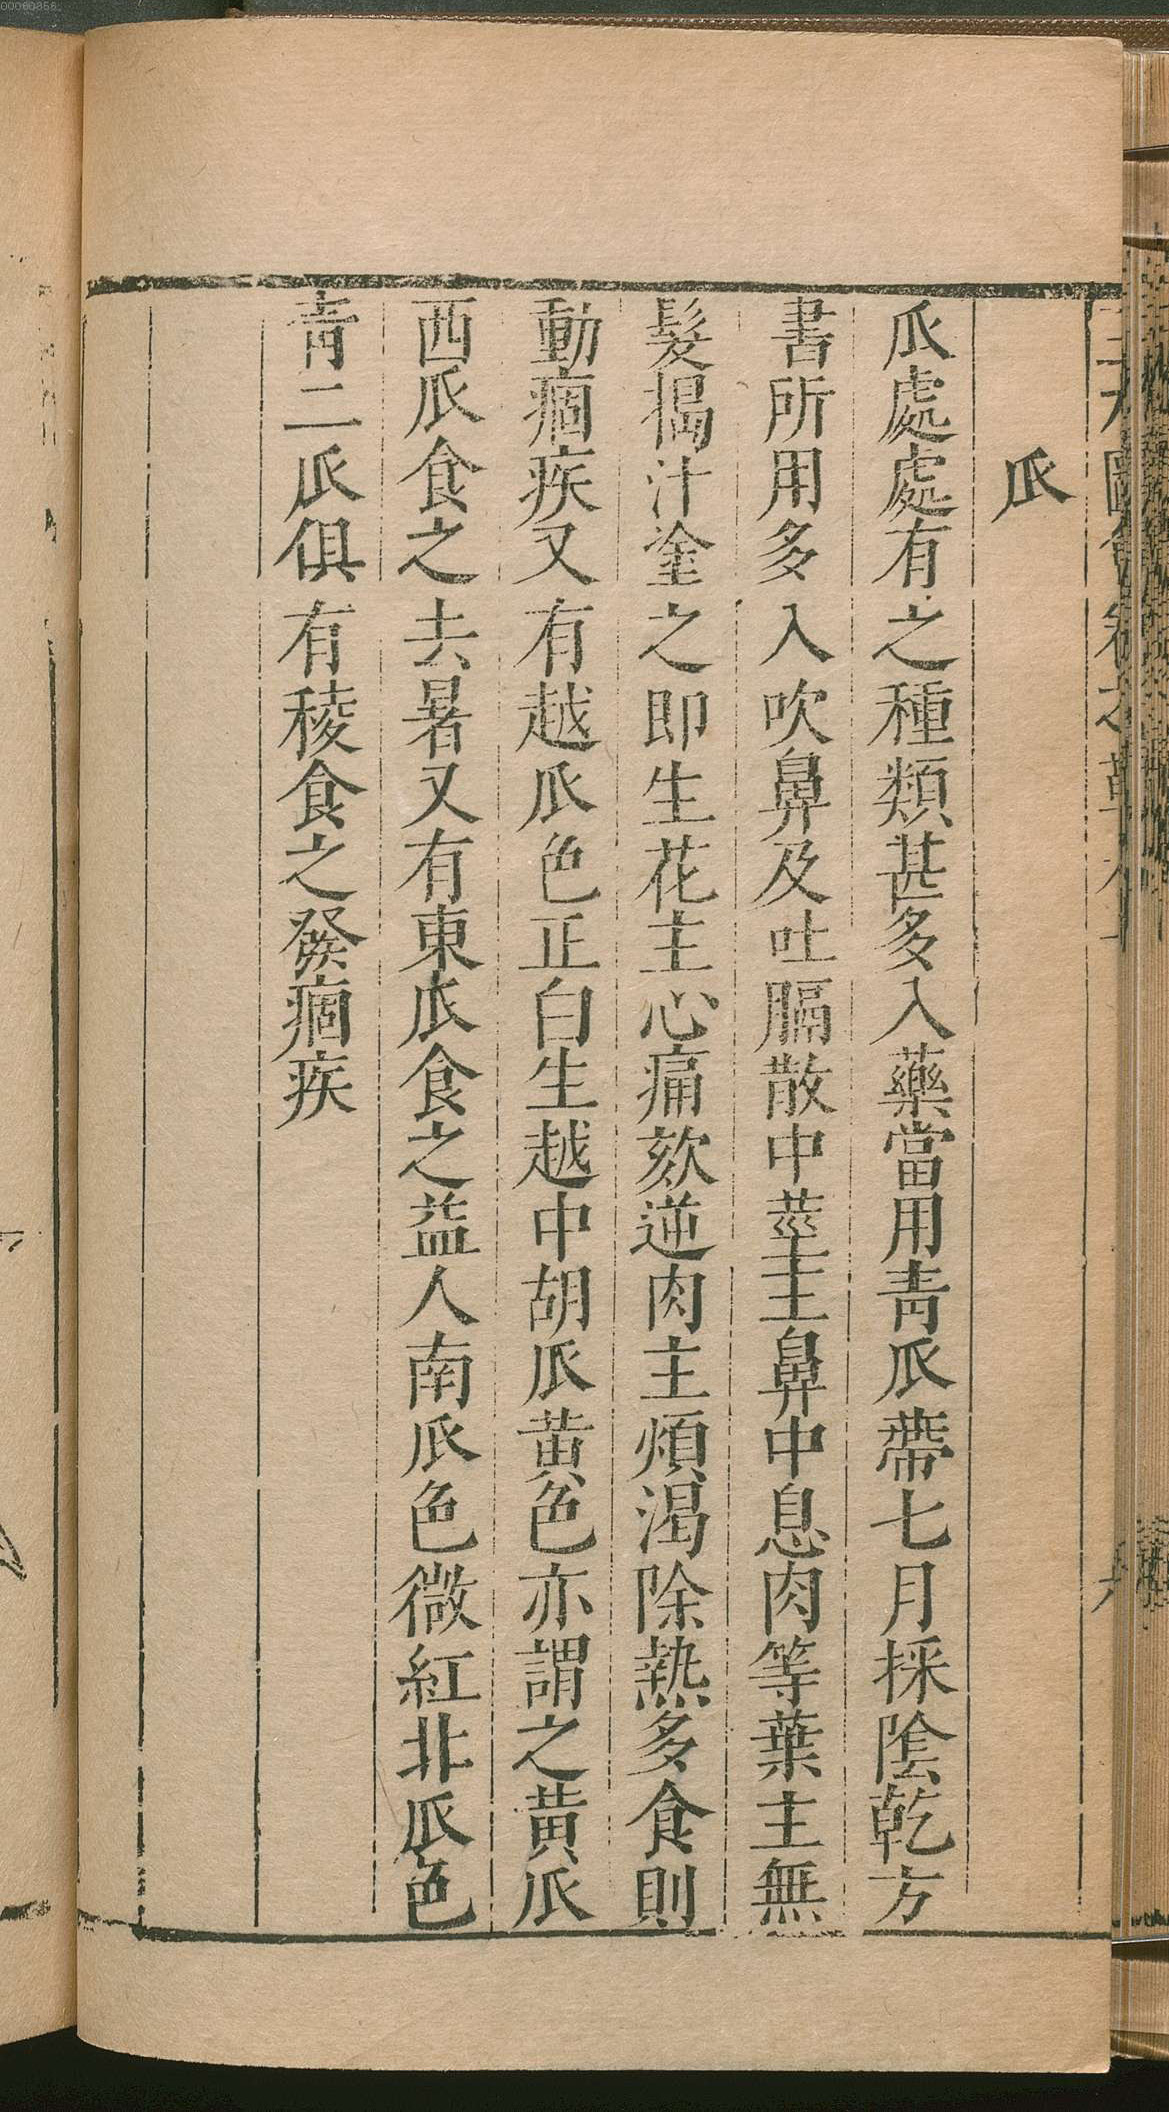 瓜
瓜處處有之種類甚多入藥當用靑瓜蔕七月採陰乾方
書所用多入吹鼻及吐膈散中莖主鼻中息肉等葉主無
髮搗汁塗之即生花主心痛欬逆肉主煩渴除熱多食則
動痼疾又有越瓜色正白生越中胡瓜黄色亦謂之黄瓜
西瓜食之去暑又有東瓜食之益人南瓜色微紅北瓜色
靑二瓜俱有稜食之發痼疾